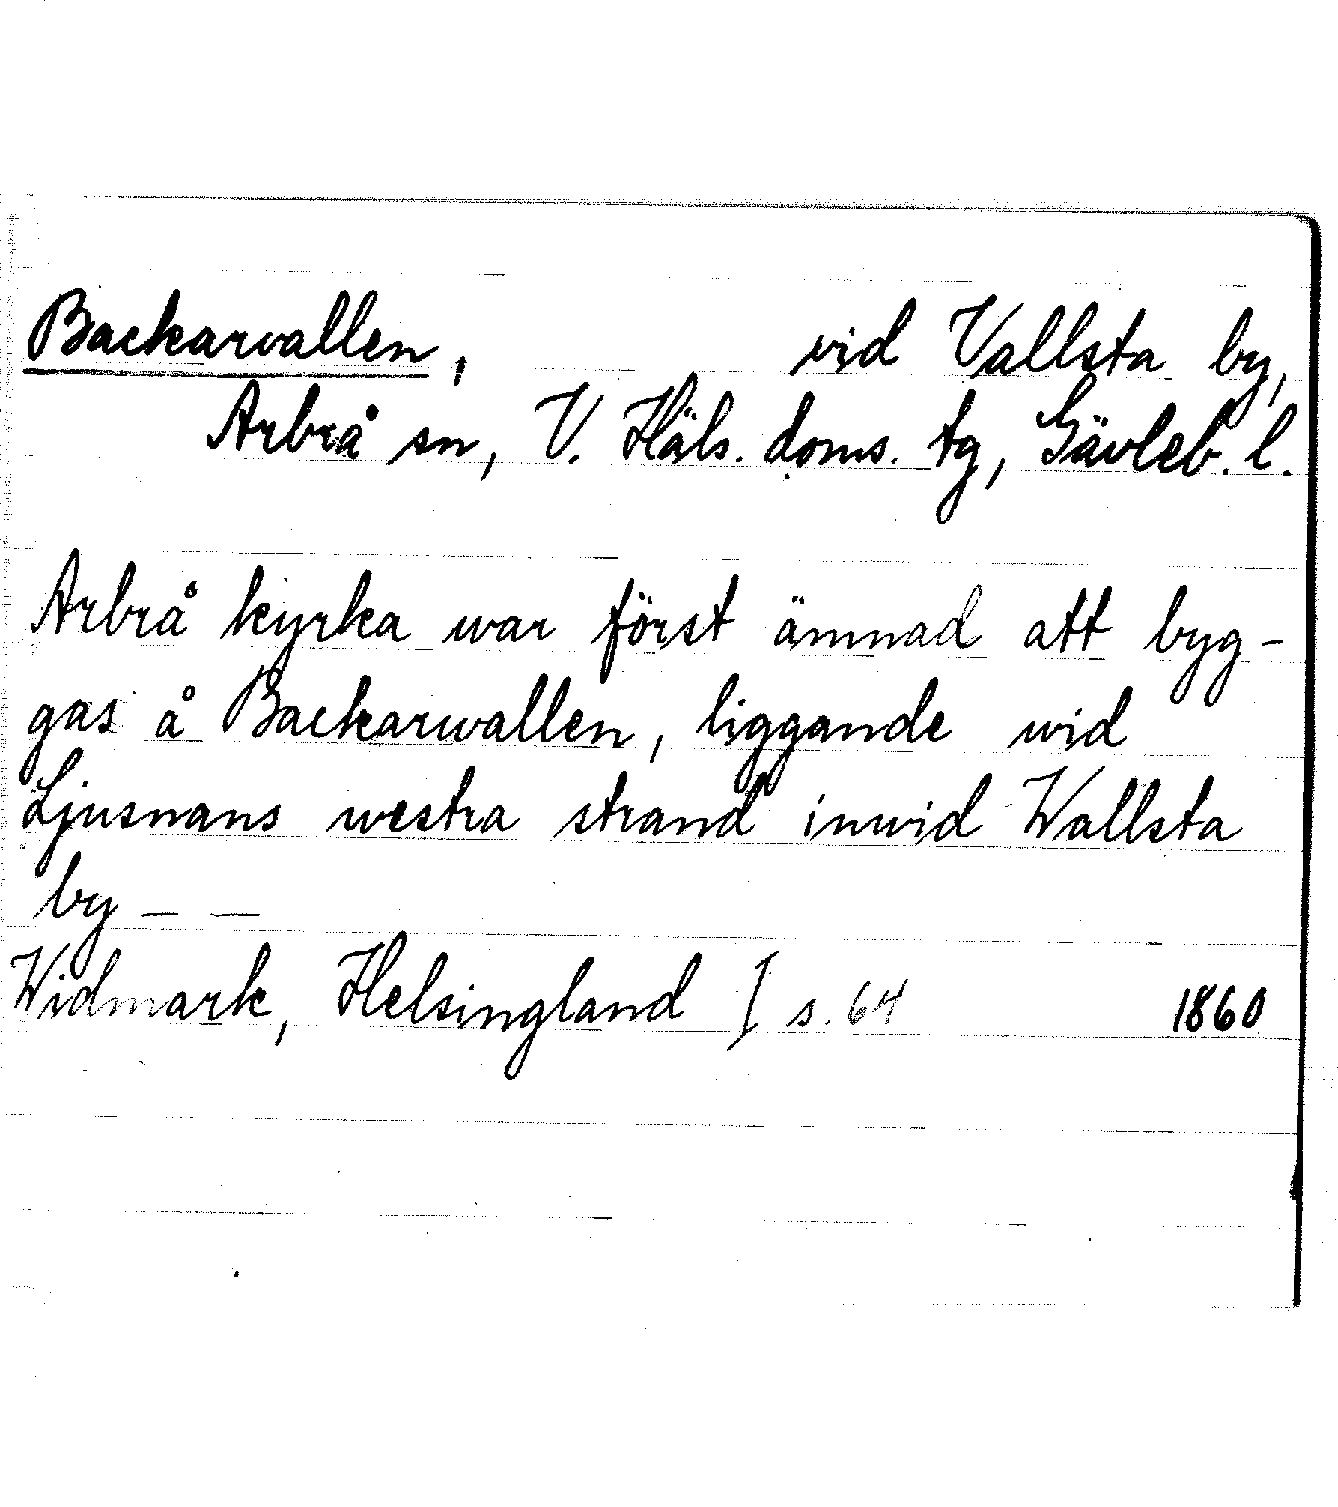 Backarvallen, vid Vallsta by,
Arbrå sn, V. Häls. doms. tg, Gävleb. l.
Arbrå kyrka war först ämnad att byg-
gas å Backarwallen, liggande wid
Ljusnans westra strand inwid Wallsta
by — —
Widmark, Helsingland [ s. 64 1860